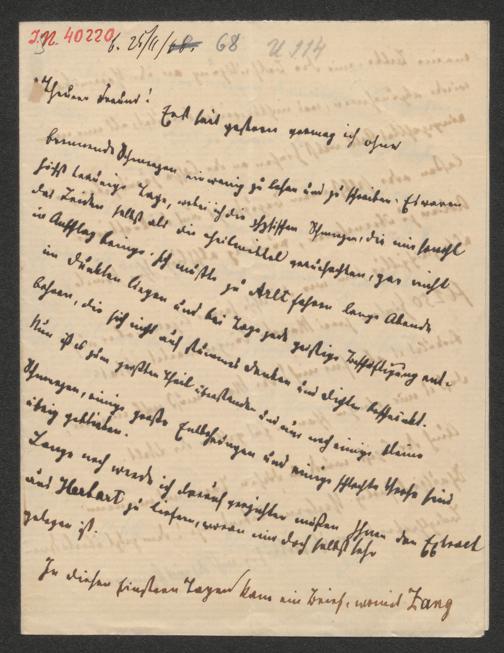 I.N. 40220
6. 25/11/68. 68 U 114
Theurer Freund!
Erst seit gestern vermag ich ohne
brennende Schmerzen ein wenig zu lesen und zu schreiben. Es waren
höchst traurige Tage, wobei ich die physischen Schmerzen, die mir sowohl
das Leiden selbst als die Heilmittel verursachten, gar nicht
in Anschlag bringe. Ich mußte zu Arlt fahren lange Abende
im Dunklen liegen und bei Tage jede geistige Beschäftigung ent-
behren, die sich nicht auf stummes Denken und Dichten beschränkt.
Nun ist es zum größten Theil überstanden und nur noch einige kleine
Schmerzen, einige große Entbehrungen und einige schlechte Verse sind
übrig geblieben.
Lange noch werde ich darauf verzichten müßen Ihnen den Extract
aus Herbart zu liefern, woran mir doch selbst sehr
gelegen ist.
In diesen finstern Tagen kam ein Brief, womit Lang